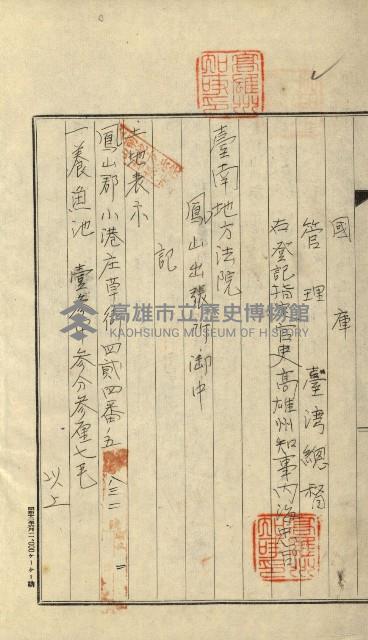 國庫
管理 臺湾總督
右登記指定官吏高雄州知事内海忠司
臺南地方法院
鳳山出張所御中
記
土地表示
鳳山郡小港庄草衙四貳四番ノ五
一養魚池 壹 参分参厘七毛
以上
高雄市立歷史博物館
KAOHSIUNG MUSEUM OF HISTORY